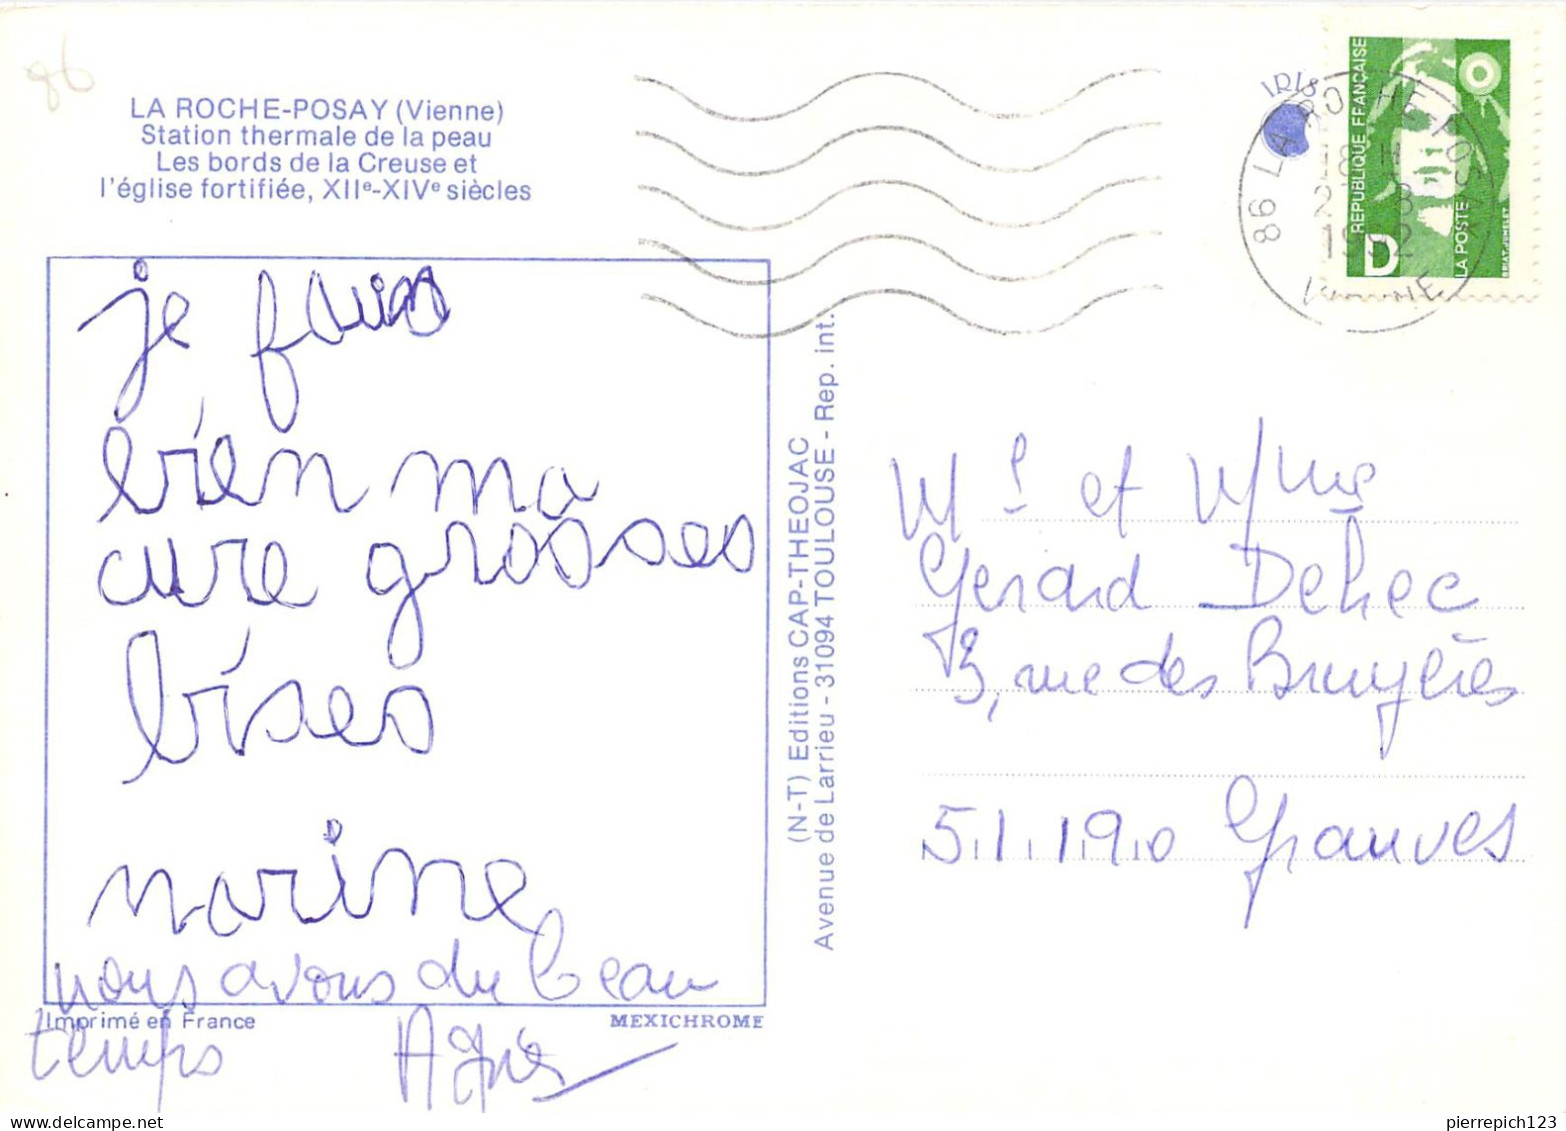 86
LA ROCHE-POSAY (Vienne)
Station thermale de la peau
Les bords de la Creuse et
l'église fortifiée, XIIe-XIVe siècles
je fais
bien ma
cure grosses
bises
marine
nous avons du beau
temps Agnès
Imprimé en France
MEXICHROME
(N-T) Editions CAP-THEOJAC
Avenue de Larrieu - 31094 TOULOUSE - Rep. int.
IRIS
86 LA ROCHE-POSAY
18 H
1992
VIENNE
REPUBLIQUE FRANÇAISE
D
LA POSTE
Mr et Mme
Gerard Dehec
3, rue des Bruyères
51190 Grauves
pierrepich123